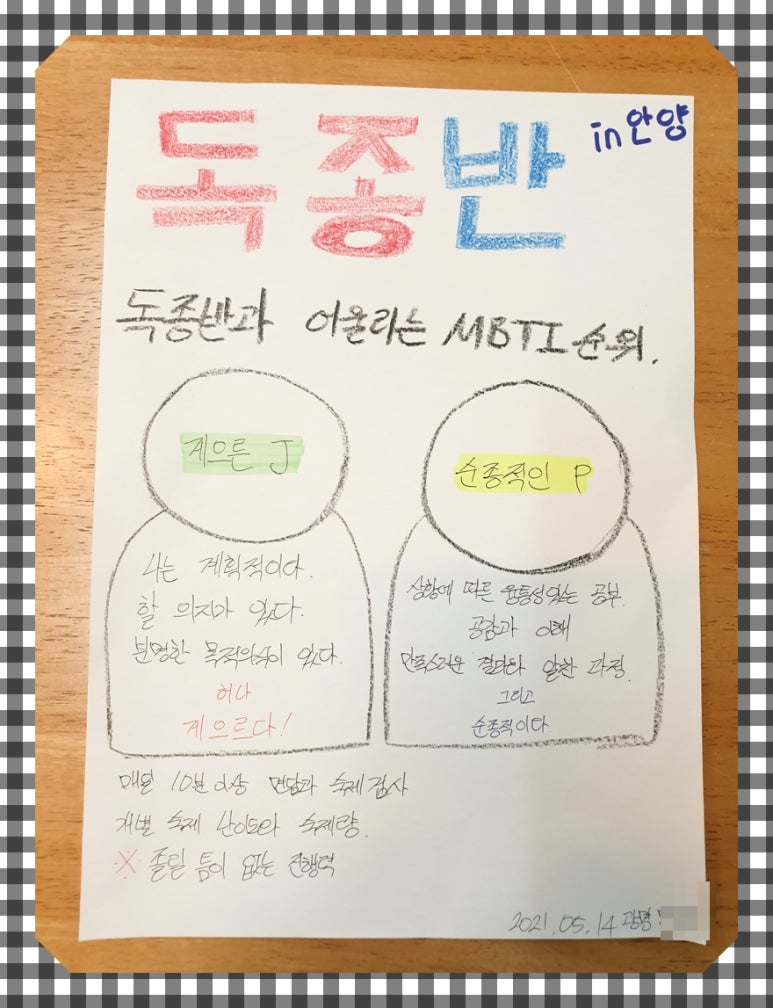 독종반
in 안양
독종반과 어울리는 MBTI 순위.
게으른 J
나는 계획적이다.
할 의지가 있다.
분명한 목적의식이 있다.
허나
게으르다!
순종적인 P
상황에 따른 융통성있는 공부.
공감과 이해
만족스러운 결과와 알찬 과정.
그리고
순종적이다
매월 10분 이상 면담과 숙제 검사
개별 숙제 난이도와 숙제량.
※ 졸릴 틈이 없는 진행력
2021.05.14 광명